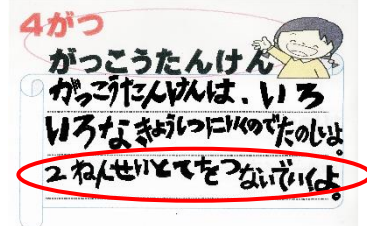 4がつ
がっこうたんけん
がっこうたんけんは、いろ
いろなきょうしつにいくのでたのしいよ。
2ねんせいとてをつないでいくよ。